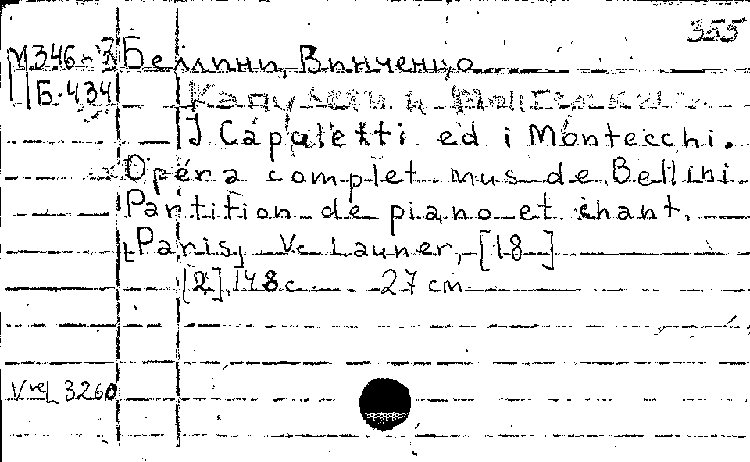 355
М346-3 Беллини, Винченцо
Б.434 Капулети и Монтекки
I Capuletti ed i Montecchi.
Opéra complet mus de Bellini
Partition de piano et chant.
Paris, Vᵉ Launer, [18 ]
[2], 148 с 27 cm
Vᵛᵉ L 3260